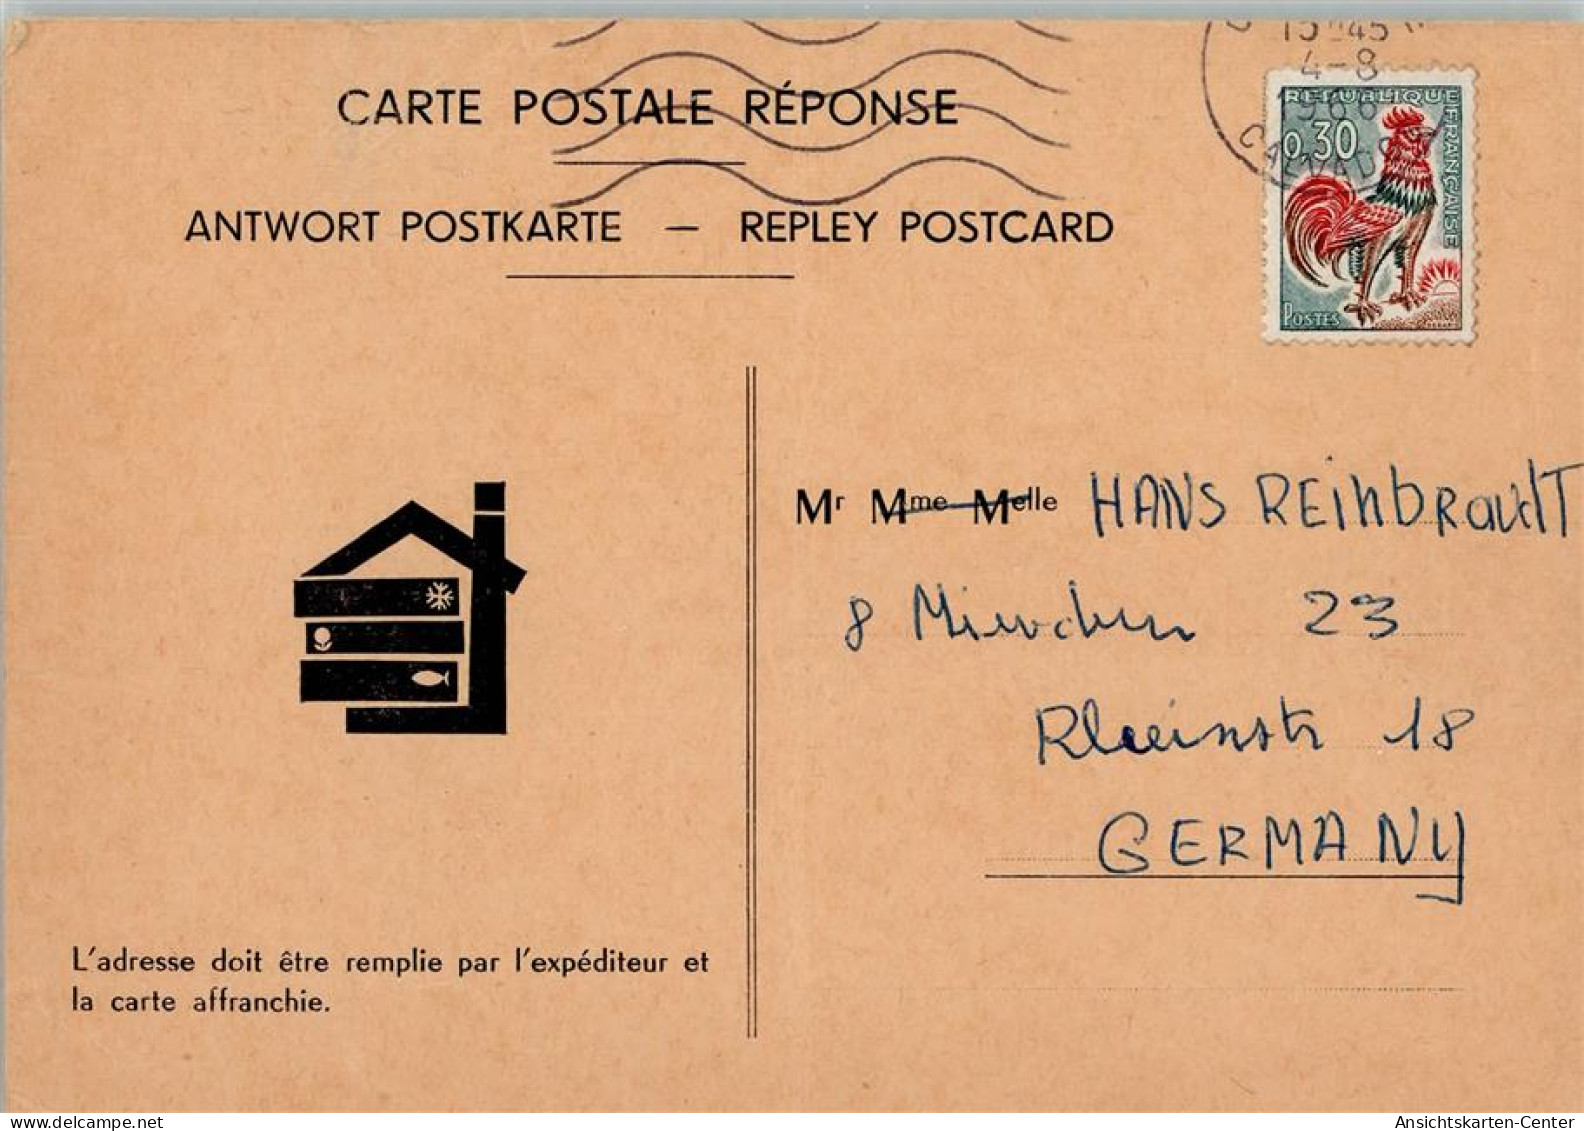 CARTE POSTALE RÉPONSE
ANTWORT POSTKARTE — REPLEY POSTCARD
15H45
4-8
1966
CALVADOS
REPUBLIQUE FRANÇAISE
0,30
POSTES
Mr Mme Melle HANS REINBRANDT
8 München 23
Rheinstr 18
GERMANY
L'adresse doit être remplie par l'expéditeur et
la carte affranchie.
Ansichtskarten-Center